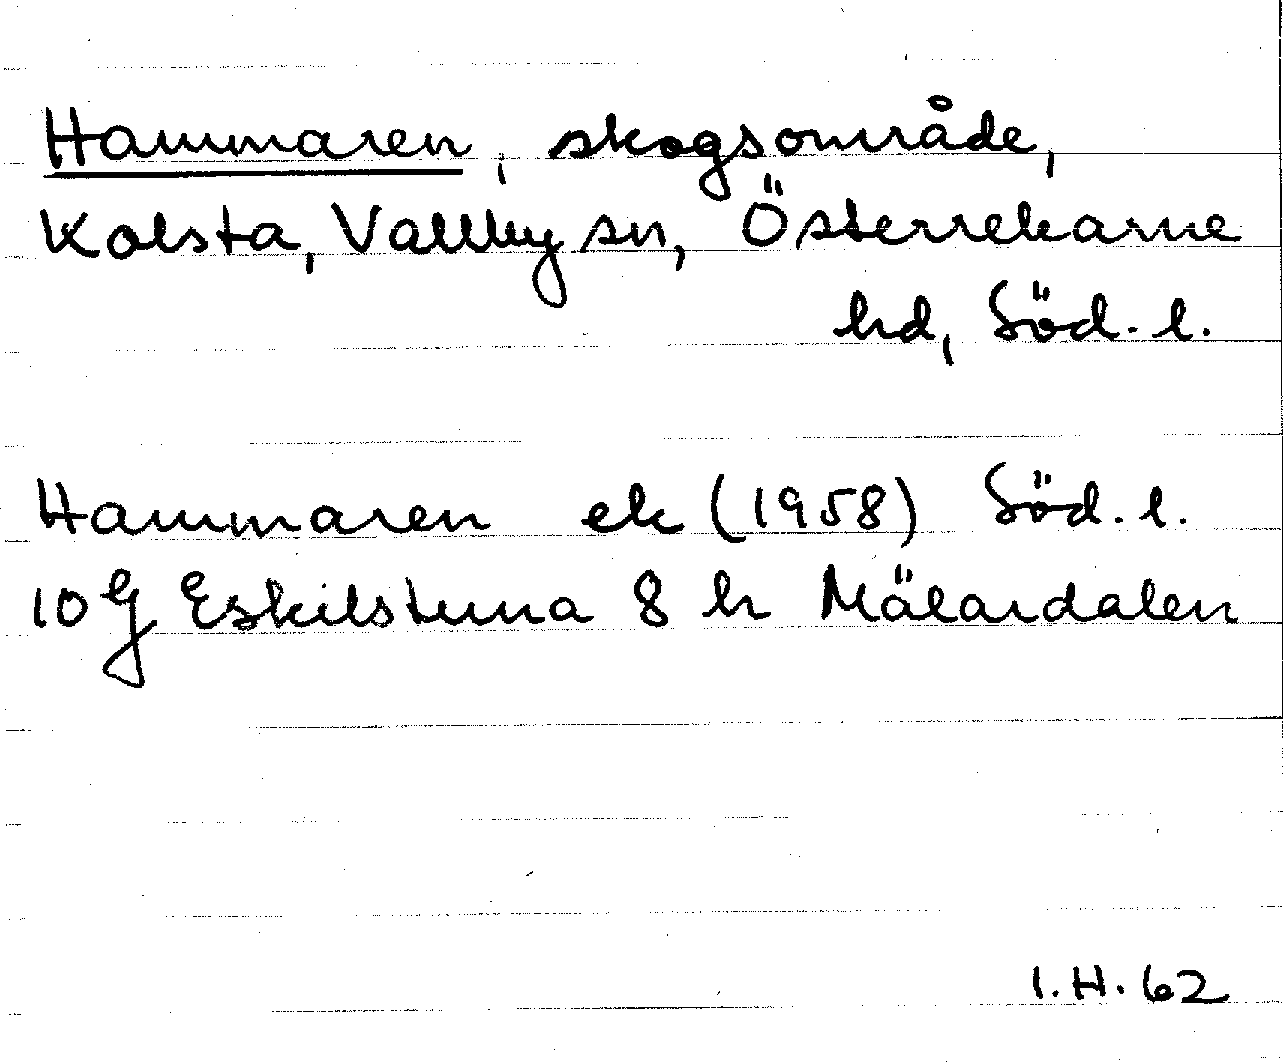 Hammaren, skogsområde,
Kolsta, Vallby sn, Österrekarne
hd, Söd. l.
Hammaren ek (1958) Söd. l.
10 G Eskilstuna 8 h Mälardalen
I. H. 62